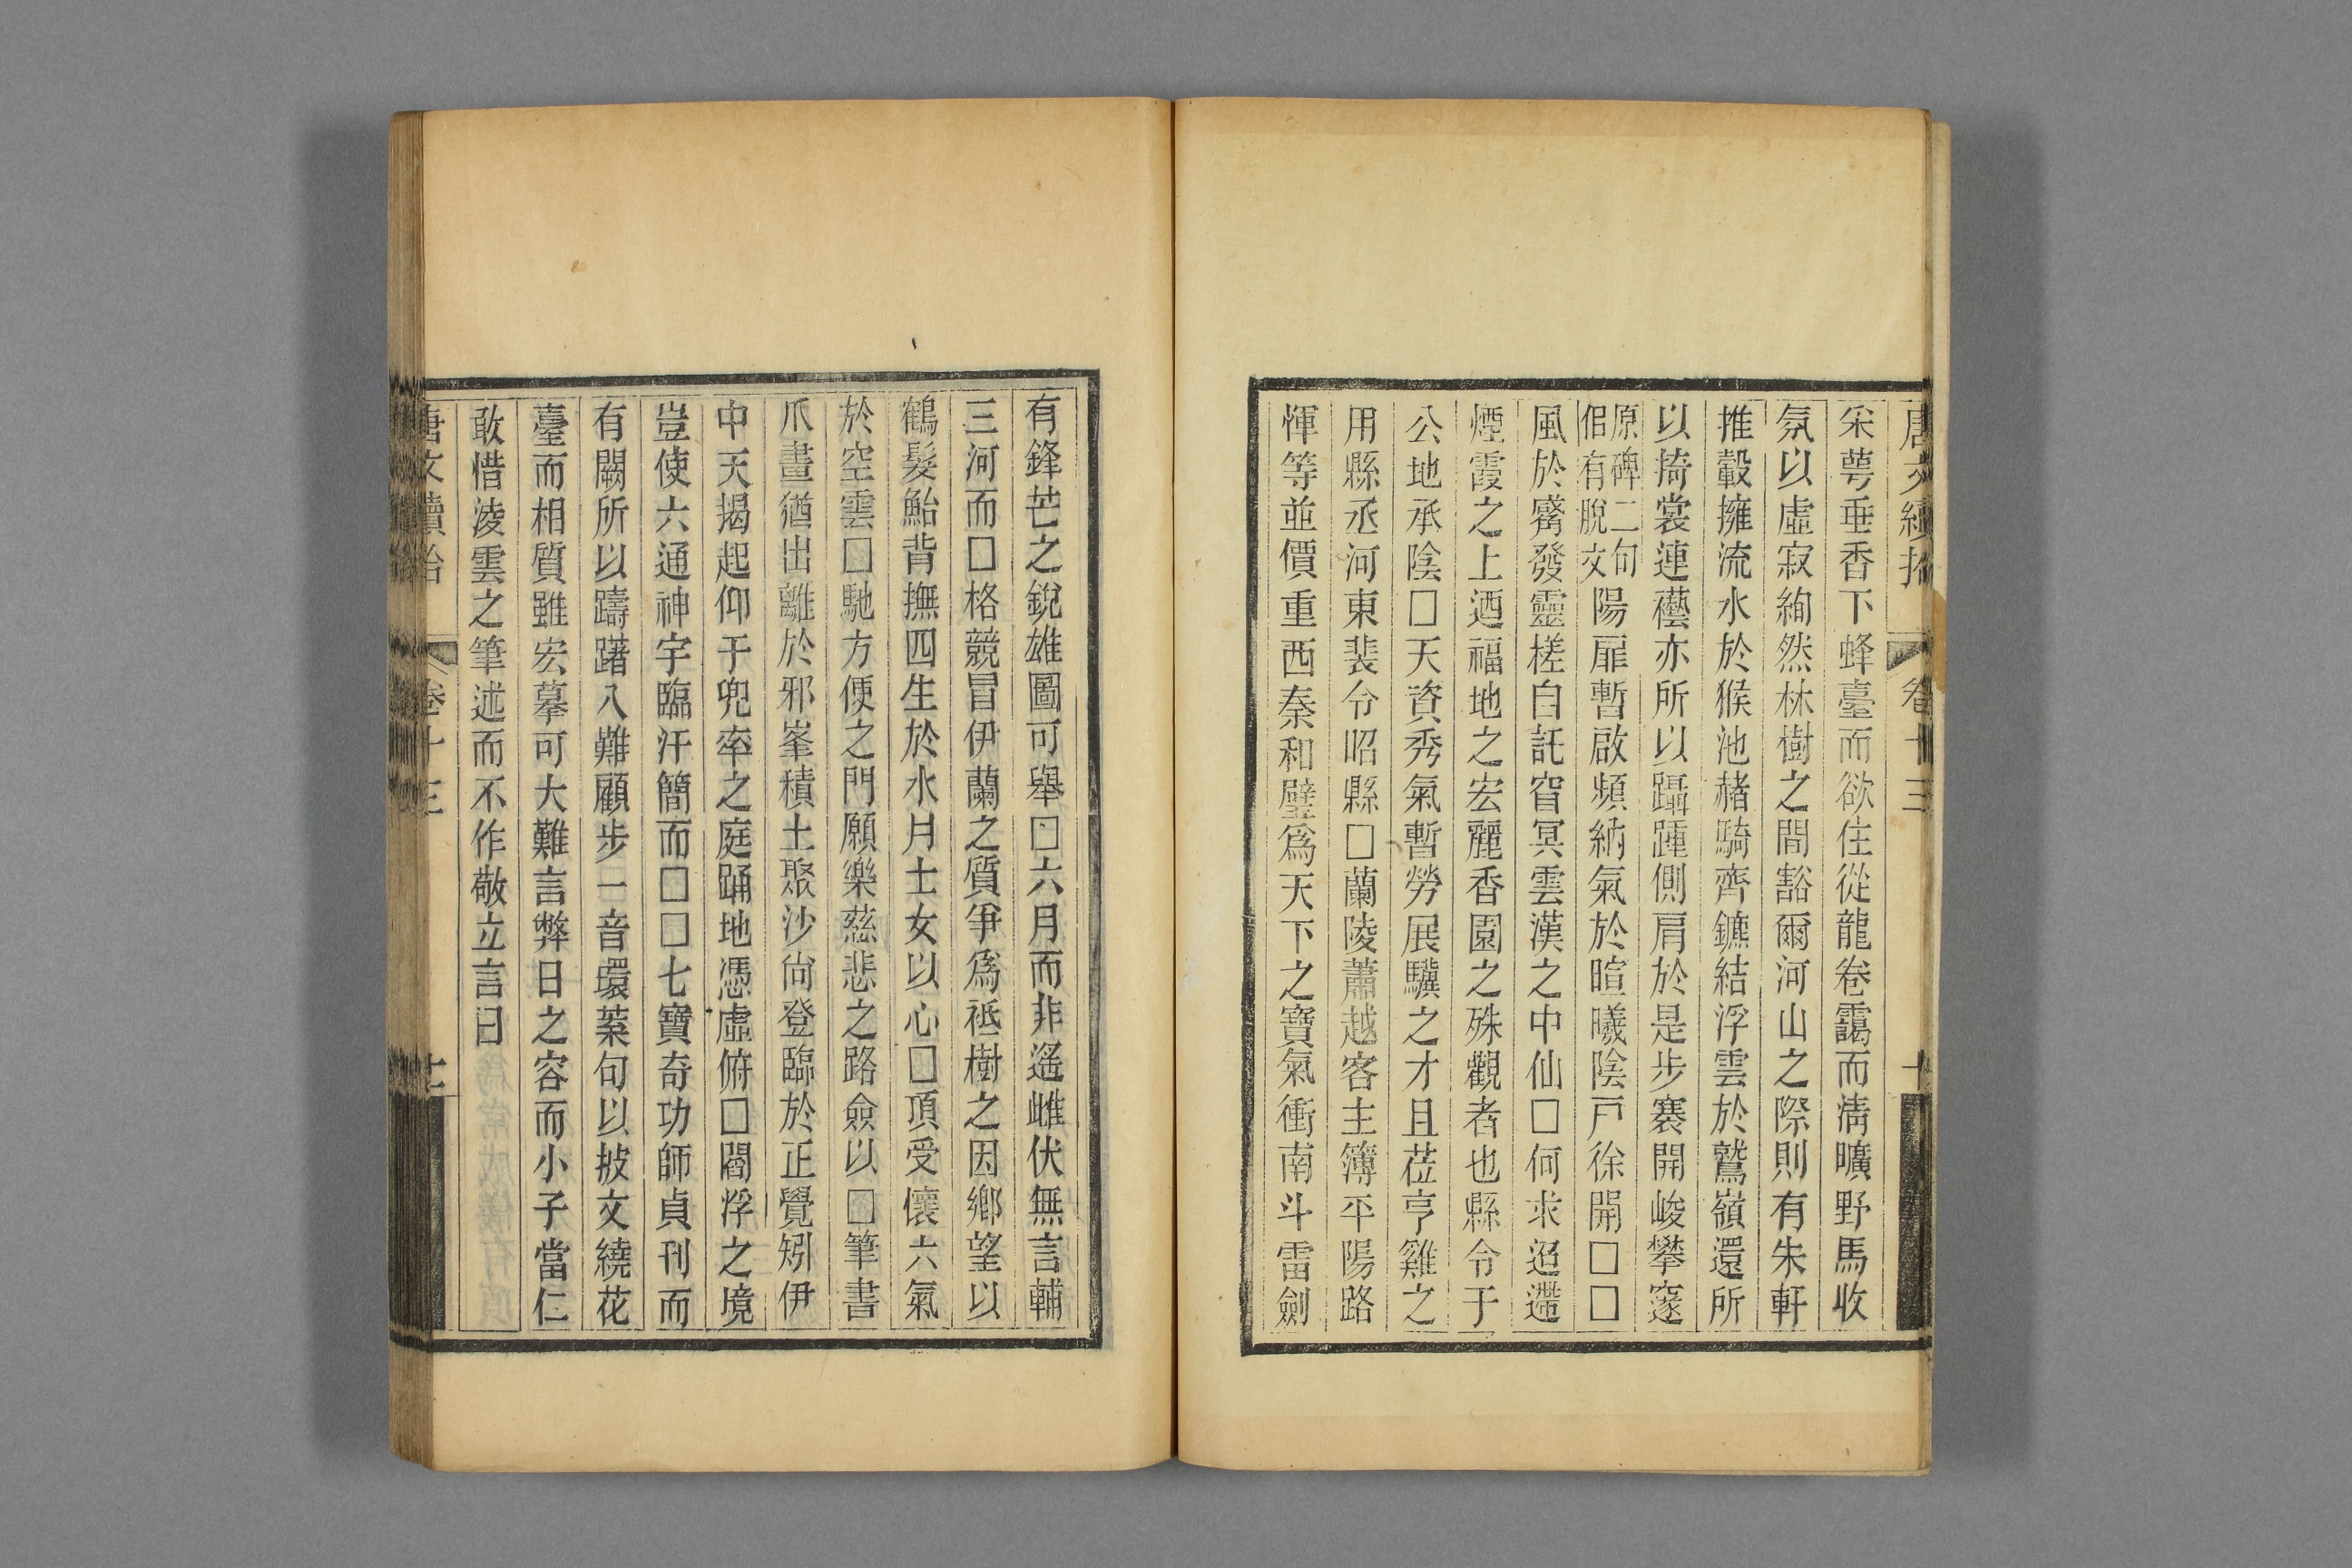 唐文續拾 卷十三 十
采萼垂香下蜂臺而欲住從龍卷靄而淸曠野馬收
氛以虛寂絢然林樹之間豁爾河山之際則有朱軒
推轂擁流水於猴池赭騎齊鑣結浮雲於鷲嶺還所
以掎裳連襼亦所以躡踵側肩於是步褰開峻攀窱
原碑二句但有脫文陽扉暫啟頻納氣於暄曦陰戸徐開□□
風於霱發靈槎自託窅冥雲漢之中仙□何求迢遰
煙霞之上迺福地之宏麗香園之殊觀者也縣令于
公地承陰□天資秀氣暫勞展驥之才且莅亨雞之
用縣丞河東裴令昭縣□蘭陵蕭越客主簿平陽路
惲等並價重西秦和璧爲天下之寶氣衝南斗雷劍
有鋒芒之銳雄圖可舉□六月而非遙雌伏無言輔
三河而□格競冒伊蘭之質爭爲祇樹之因鄉望以
鶴髮鮐背撫四生於水月士女以心□頂受懷六氣
於空雲□馳方便之門願樂慈悲之路僉以□筆書
爪畫猶出離於邪峯積土聚沙尙登臨於正覺矧伊
中天揭起仰干兜率之庭踊地憑虛俯□閻浮之境
豈使六通神宇臨汗簡而□□七寶奇功師貞刊而
有闕所以躊躇八難顧步一音環葉句以披文繞花
臺而相質雖宏摹可大難言弊日之容而小子當仁
敢惜淩雲之筆述而不作敬立言曰
唐文續拾 卷十三 十一